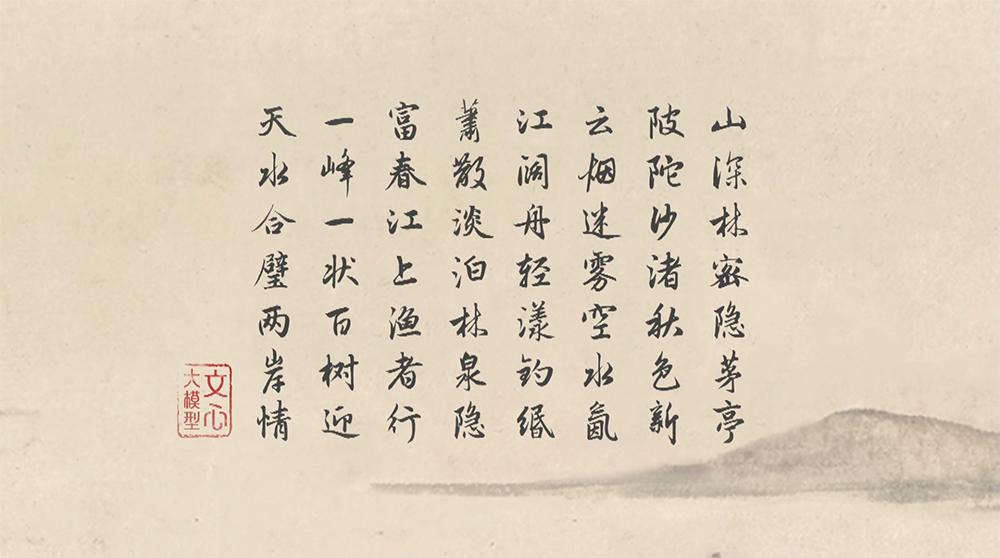 山深林密隐茅亭
陂陀沙渚秋色新
云烟迷雾空水氤
江阔舟轻漾钓缗
萧散淡泊林泉隐
富春江上渔者行
一峰一状百树迎
天水合璧两岸情
文心
大模型